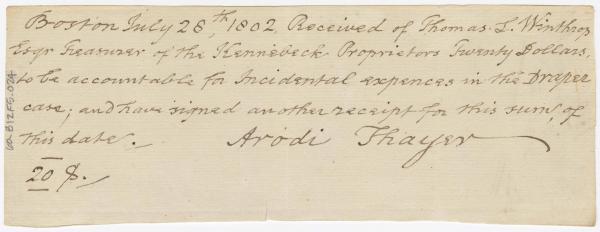 Boston July 28,th 1802, Received of Thomas L. Winthrop
Esqr Treasurer of the Kennebeck Proprietors Twenty Dollars,
to be accountable for Incidental expences in the Draper
case; and have signed another receipt for this sum, of
this date.
Arodi Thayer
20 $.